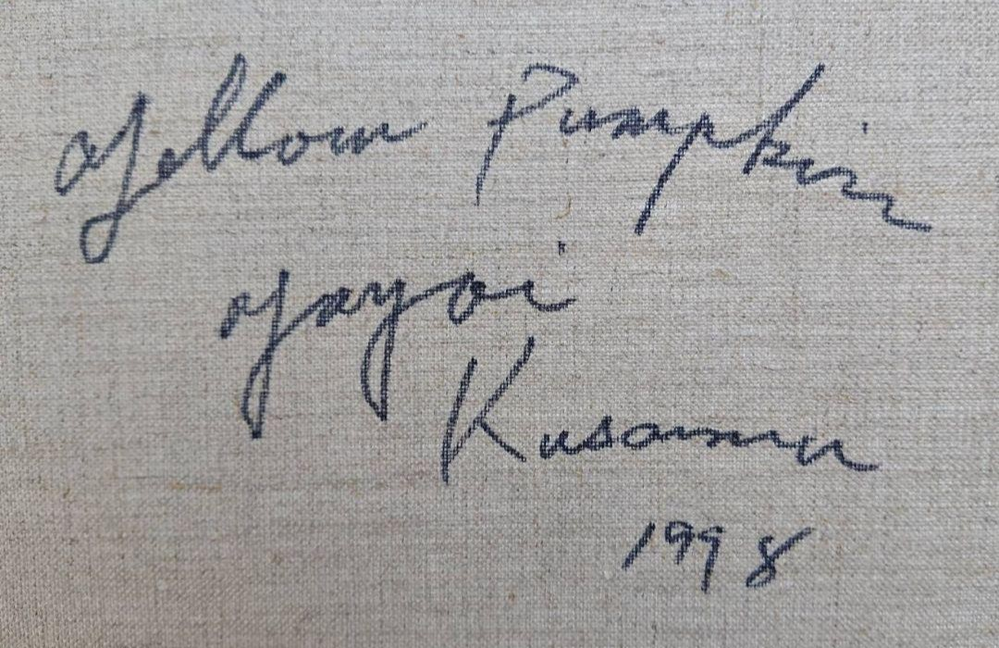 Yellow Pumpkin
Yayoi
Kusama
1998